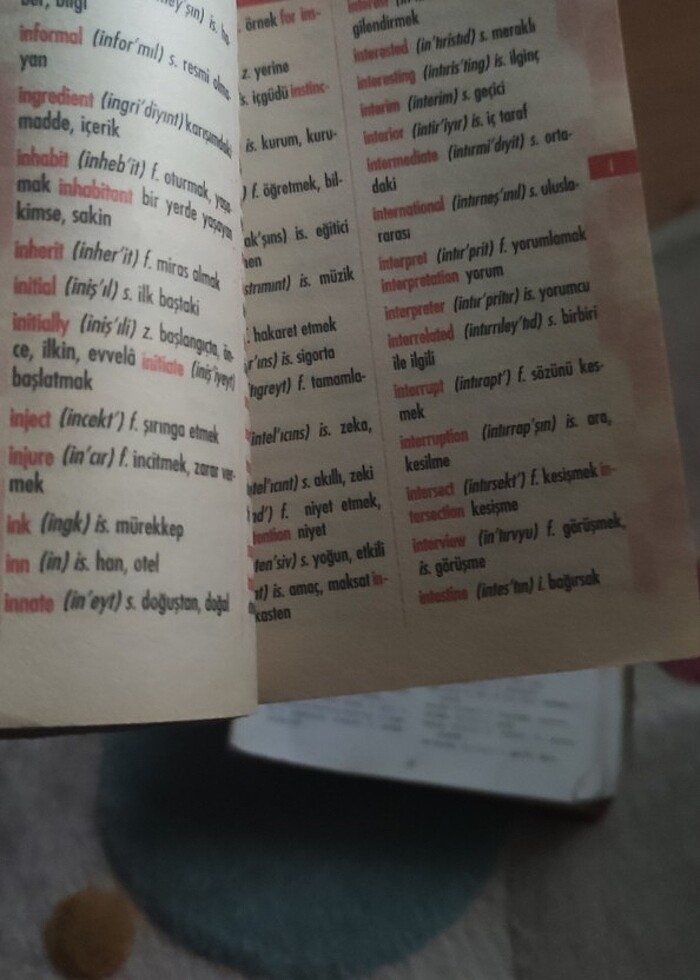 informal (infor'mıl) s. resmi olma-
yan
ingredient (ingri'diyınt) karışımdaki
madde, içerik
inhabit (inheb'it) f. oturmak, yaşa-
mak inhabitant bir yerde yaşayan
kimse, sakin
inherit (inher'it) f. miras almak
initial (iniş'ıl) s. ilk baştaki
initially (iniş'ıli) z. başlangıçta, ön-
ce, ilkin, evvelâ initiate (iniş'iyeyt)
başlatmak
inject (incekt') f. şırınga etmek
injure (in'cır) f. incitmek, zarar ver-
mek
ink (ingk) is. mürekkep
inn (in) is. han, otel
innate (in'eyt) s. doğuştan, doğal
örnek for ins-
z. yerine
s. içgüdü instinc-
is. kurum, kuru-
) f. öğretmek, bil-
ak'şıns) is. eğitici
strımınt) is. müzik
hakaret etmek
r'ıns) is. sigorta
tıgreyt) f. tamamla-
intel'ıcıns) is. zeka,
tel'ıcınt) s. akıllı, zeki
nd') f. niyet etmek,
tention niyet
ten'siv) s. yoğun, etkili
nt) is. amaç, maksat in-
kasten
gilendirmek
interested (in'tıristıd) s. meraklı
interesting (intıris'ting) is. ilginç
interim (interim) s. geçici
interior (intir'iyır) is. iç taraf
intermediate (intırmi'diyit) s. orta-
daki
international (intırneş'ınıl) s. ulusla-
rarası
interpret (intır'prit) f. yorumlamak
interpretation yorum
interpreter (intır'pritır) is. yorumcu
interrelated (intırriley'tıd) s. birbiri
ile ilgili
interrupt (intırapt') f. sözünü kes-
mek
interruption (intırrap'şın) is. ara,
kesilme
intersect (intırsekt') f. kesişmek in-
tersection kesişme
interview (in'tırvyu) f. görüşmek,
is. görüşme
intestine (intes'tın) i. bağırsak
I